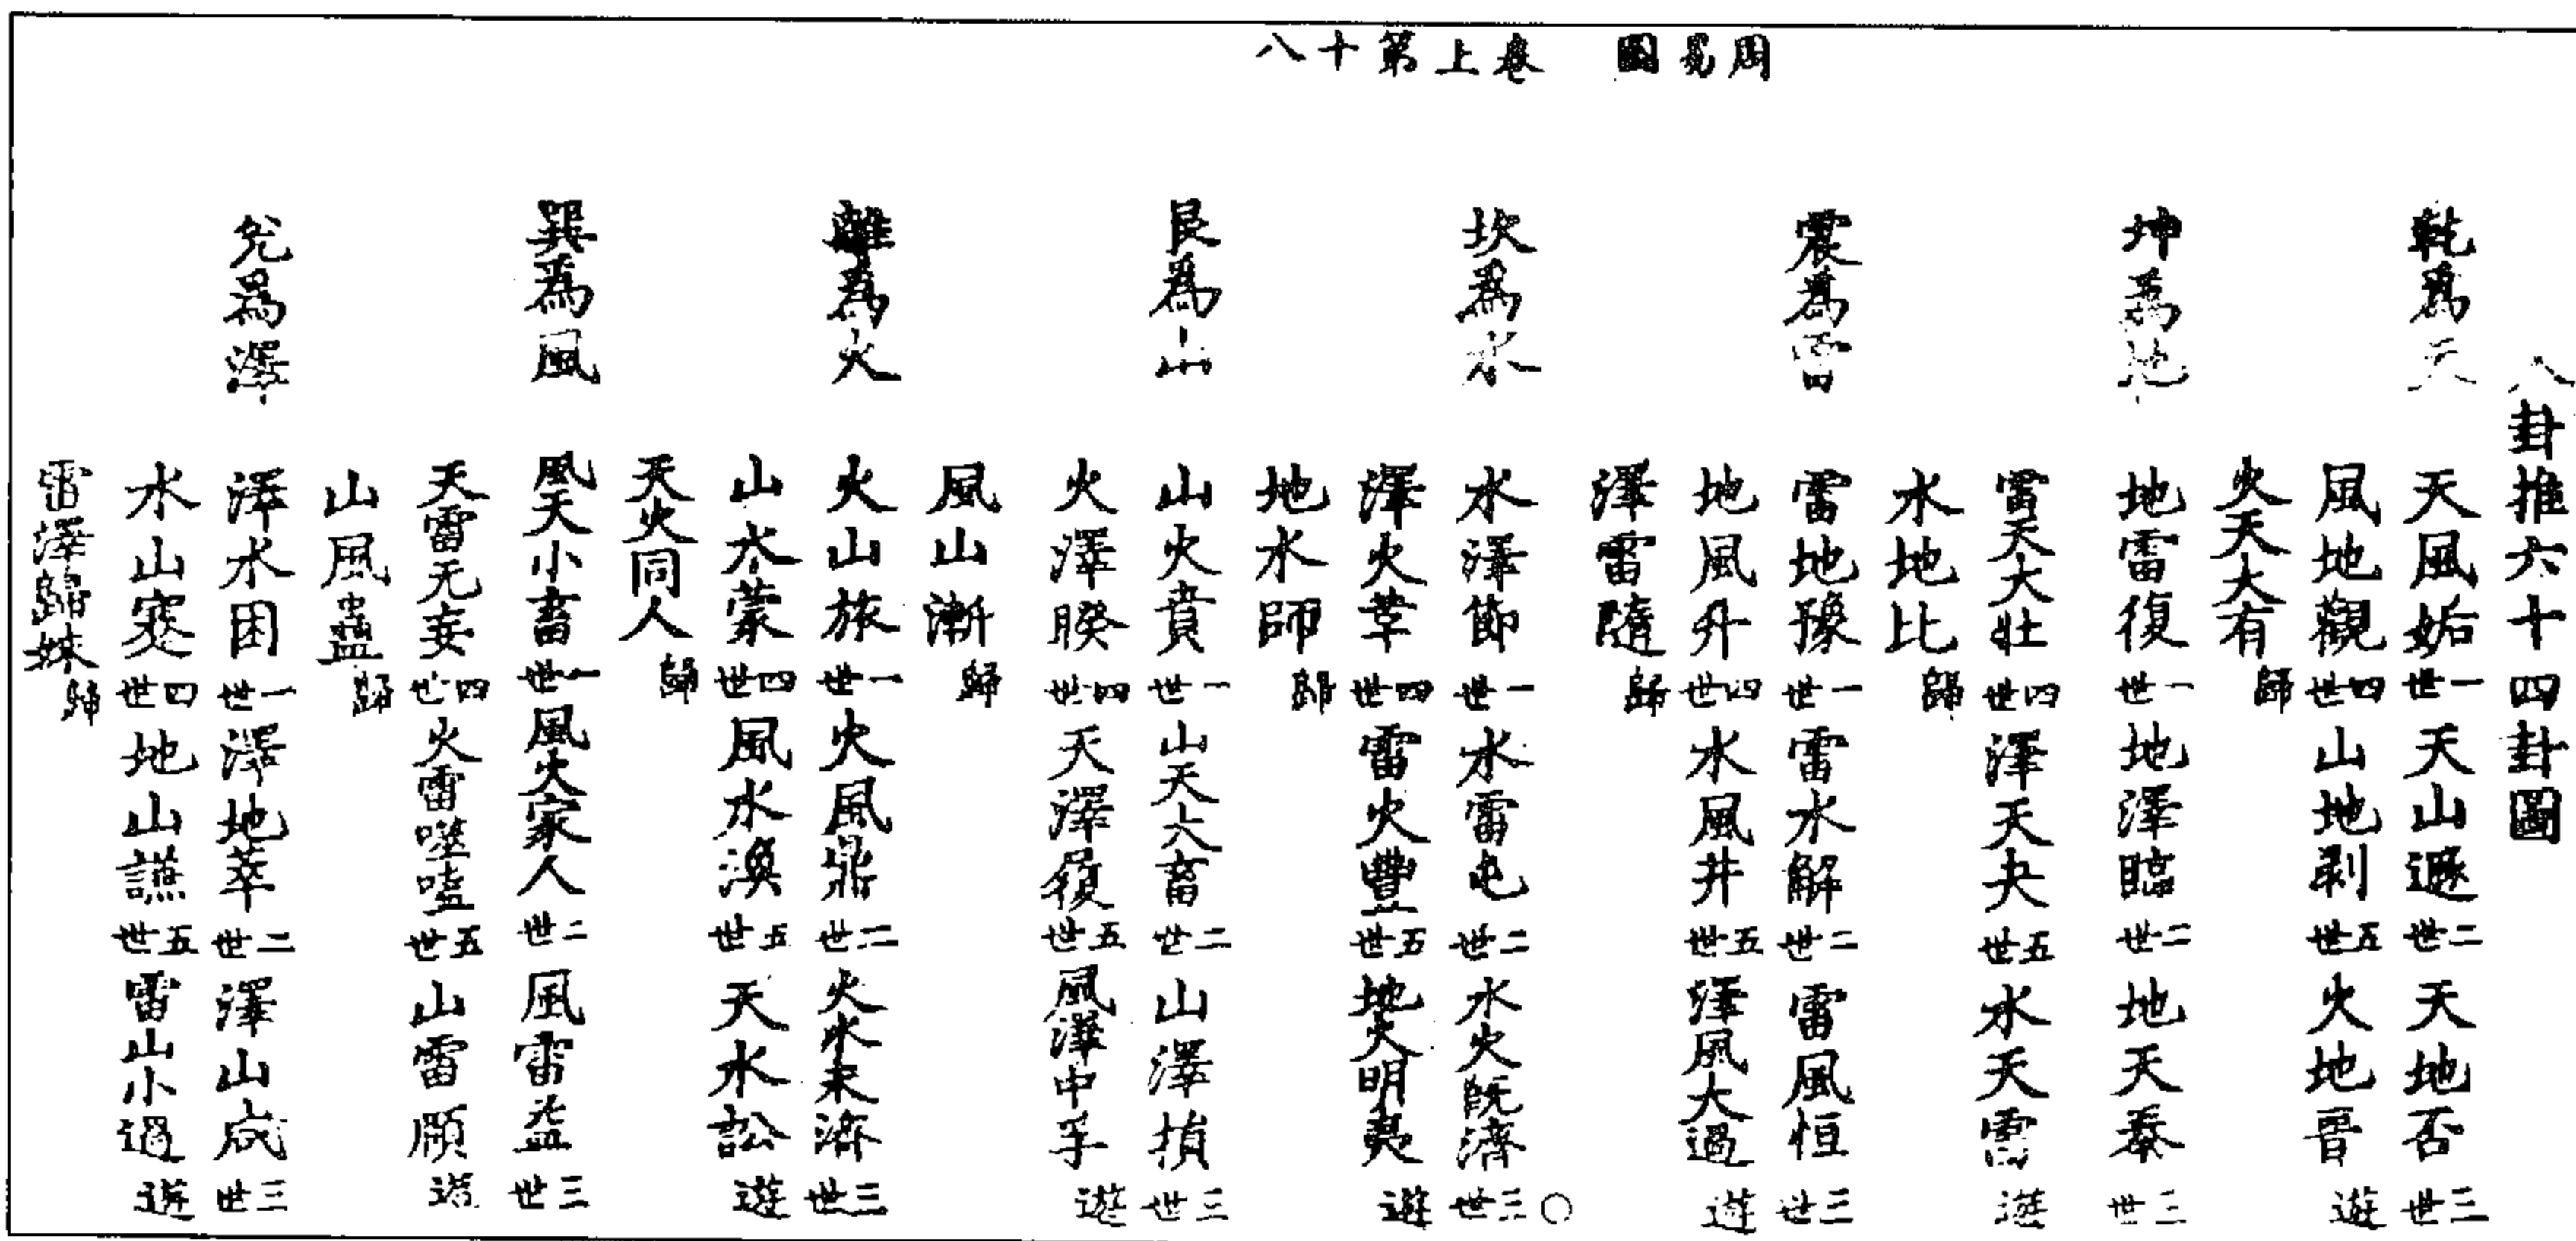 周易圖　卷上第十八
八卦推六十四卦圖
乾爲天　天風姤一世　天山遯二世　天地否三世
風地觀四世　山地剥五世　火地晉遊
火天大有歸
坤爲地　地雷復一世　地澤臨二世　地天泰三世
雷天大壯四世　澤天夬五世　水天雷遊
水地比歸
震爲雷　雷地豫一世　雷水解二世　雷風恒三世
地風升四世　水風井五世　澤風大過遊
澤雷隨歸
坎爲水　水澤節一世　水雷屯二世　水火既濟三世○
澤火革四世　雷火豐五世　地火明夷遊
地水師歸
艮爲山　山火賁一世　山天大畜二世　山澤損三世
火澤睽四世　天澤履五世　風澤中孚遊
風山漸歸
離爲火　火山旅一世　火風鼎二世　火水未濟三世
山水蒙四世　風水渙五世　天水訟遊
天火同人歸
巽爲風　風天小畜一世　風火家人二世　風雷益三世
天雷无妄四世　火雷噬嗑五世　山雷頤遊
山風蠱歸
兌爲澤　澤水困一世　澤地萃二世　澤山咸三世
水山蹇四世　地山謙五世　雷山小過遊
雷澤歸妹歸